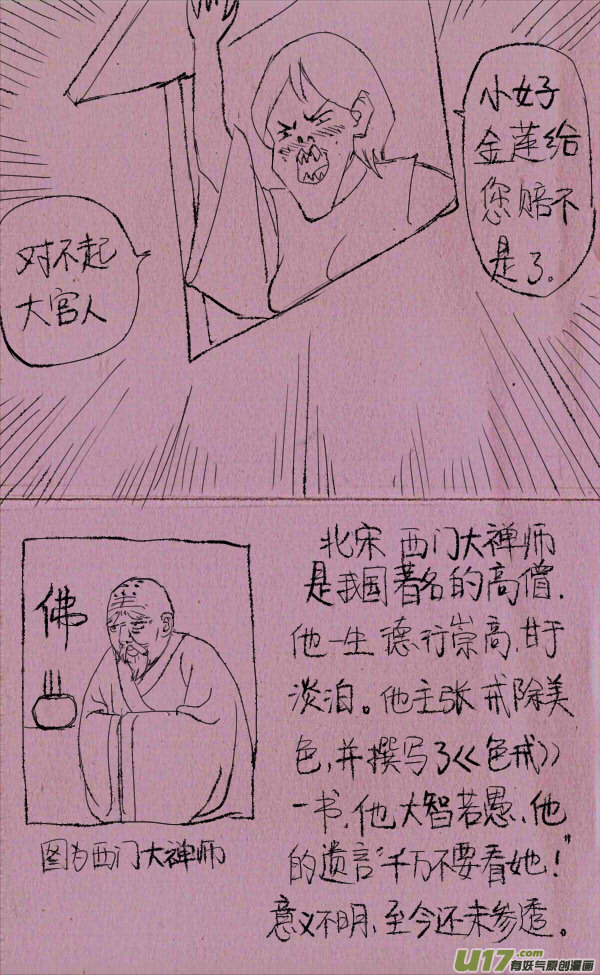 对不起
大官人
小妤
金莲给
您赔不
是了。
佛
图为西门大禅师
北宋 西门大禅师
是我国著名的高僧.
他一生 德行崇高.甘于
淡泊。他主张 戒除美
色,并撰写了《色戒》
一书.他大智若愚.他
的遗言“千万不要看她!”
意义不明,至今还未参透。
U17.com
有妖气原创漫画